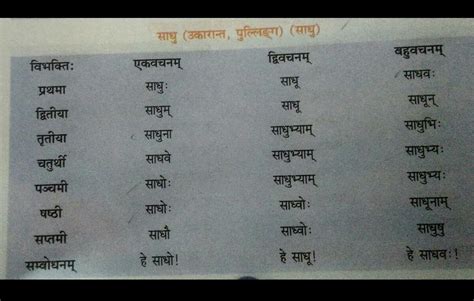 साधु (उकारान्त, पुल्लिङ्ग) (साधु)
विभक्तिः एकवचनम् द्विवचनम् बहुवचनम्
प्रथमा साधुः साधू साधवः
द्वितीया साधुम् साधू साधून्
तृतीया साधुना साधुभ्याम् साधुभिः
चतुर्थी साधवे साधुभ्याम् साधुभ्यः
पञ्चमी साधोः साधुभ्याम् साधुभ्यः
षष्ठी साधोः साध्वोः साधूनाम्
सप्तमी साधौ साध्वोः साधुषु
सम्बोधनम् हे साधो! हे साधू! हे साधवः!